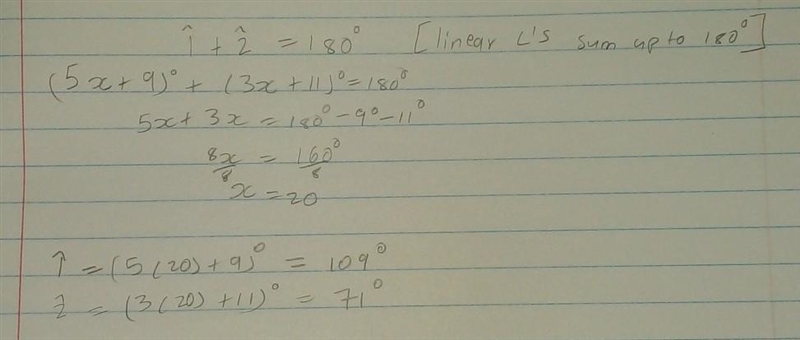 1̂ + 2̂ = 180° [linear L's sum up to 180°]
(5x + 9)° + (3x + 11)° = 180°
5x + 3x = 180° - 9° - 11°
8x/8 = 160°/8
x = 20
1̂ = (5(20) + 9)° = 109°
2̂ = (3(20) + 11)° = 71°